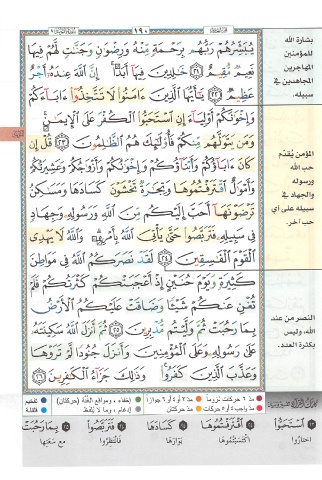 ١٩٠
يُبَشِّرُهُمْ رَبُّهُم بِرَحْمَةٍ مِّنْهُ وَرِضْوَٰنٍ وَجَنَّـٰتٍ لَّهُمْ فِيهَا
نَعِيمٌ مُّقِيمٌ ٢١ خَـٰلِدِينَ فِيهَآ أَبَدًا ۚ إِنَّ ٱللَّهَ عِندَهُۥٓ أَجْرٌ
عَظِيمٌ ٢٢ يَـٰٓأَيُّهَا ٱلَّذِينَ ءَامَنُوا۟ لَا تَتَّخِذُوٓا۟ ءَابَآءَكُمْ
وَإِخْوَٰنَكُمْ أَوْلِيَآءَ إِنِ ٱسْتَحَبُّوا۟ ٱلْكُفْرَ عَلَى ٱلْإِيمَـٰنِ ۚ
وَمَن يَتَوَلَّهُم مِّنكُمْ فَأُو۟لَـٰٓئِكَ هُمُ ٱلظَّـٰلِمُونَ ٢٣ قُلْ إِن
كَانَ ءَابَآؤُكُمْ وَأَبْنَآؤُكُمْ وَإِخْوَٰنُكُمْ وَأَزْوَٰجُكُمْ وَعَشِيرَتُكُمْ
وَأَمْوَٰلٌ ٱقْتَرَفْتُمُوهَا وَتِجَـٰرَةٌ تَخْشَوْنَ كَسَادَهَا وَمَسَـٰكِنُ
تَرْضَوْنَهَآ أَحَبَّ إِلَيْكُم مِّنَ ٱللَّهِ وَرَسُولِهِۦ وَجِهَادٍ
فِى سَبِيلِهِۦ فَتَرَبَّصُوا۟ حَتَّىٰ يَأْتِىَ ٱللَّهُ بِأَمْرِهِۦ ۗ وَٱللَّهُ لَا يَهْدِى
ٱلْقَوْمَ ٱلْفَـٰسِقِينَ ٢٤ لَقَدْ نَصَرَكُمُ ٱللَّهُ فِى مَوَاطِنَ
كَثِيرَةٍ ۙ وَيَوْمَ حُنَيْنٍ ۙ إِذْ أَعْجَبَتْكُمْ كَثْرَتُكُمْ فَلَمْ
تُغْنِ عَنكُمْ شَيْـًٔا وَضَاقَتْ عَلَيْكُمُ ٱلْأَرْضُ
بِمَا رَحُبَتْ ثُمَّ وَلَّيْتُم مُّدْبِرِينَ ٢٥ ثُمَّ أَنزَلَ ٱللَّهُ سَكِينَتَهُۥ
عَلَىٰ رَسُولِهِۦ وَعَلَى ٱلْمُؤْمِنِينَ وَأَنزَلَ جُنُودًا لَّمْ تَرَوْهَا
وَعَذَّبَ ٱلَّذِينَ كَفَرُوا۟ ۚ وَذَٰلِكَ جَزَآءُ ٱلْكَـٰفِرِينَ ٢٦
بشارة الله
للمؤمنين
المهاجرين
المجاهدين في
سبيله.
المؤمن يُقدّم
حب الله
ورسوله
والجهاد في
سبيله على أي
حب آخر.
النصر من عند
الله، وليس
بكثرة العدد.
مدّ ٦ حركات لزوماً مدّ ٢ أو ٤ أو ٦ جوازاً إخفاء، ومواقع الغُنّة (حركتان) تفخيم
مدّ واجب ٤ أو ٥ حركات مدّ حركتان إدغام، وما لا يُلفظ قلقلة
ٱسْتَحَبُّوا۟
اختاروا
ٱقْتَرَفْتُمُوهَا
اكتسبتموها
كَسَادَهَا
بوارها
فَتَرَبَّصُوا۟
فانتظروا
بِمَا رَحُبَتْ
مع سعتها